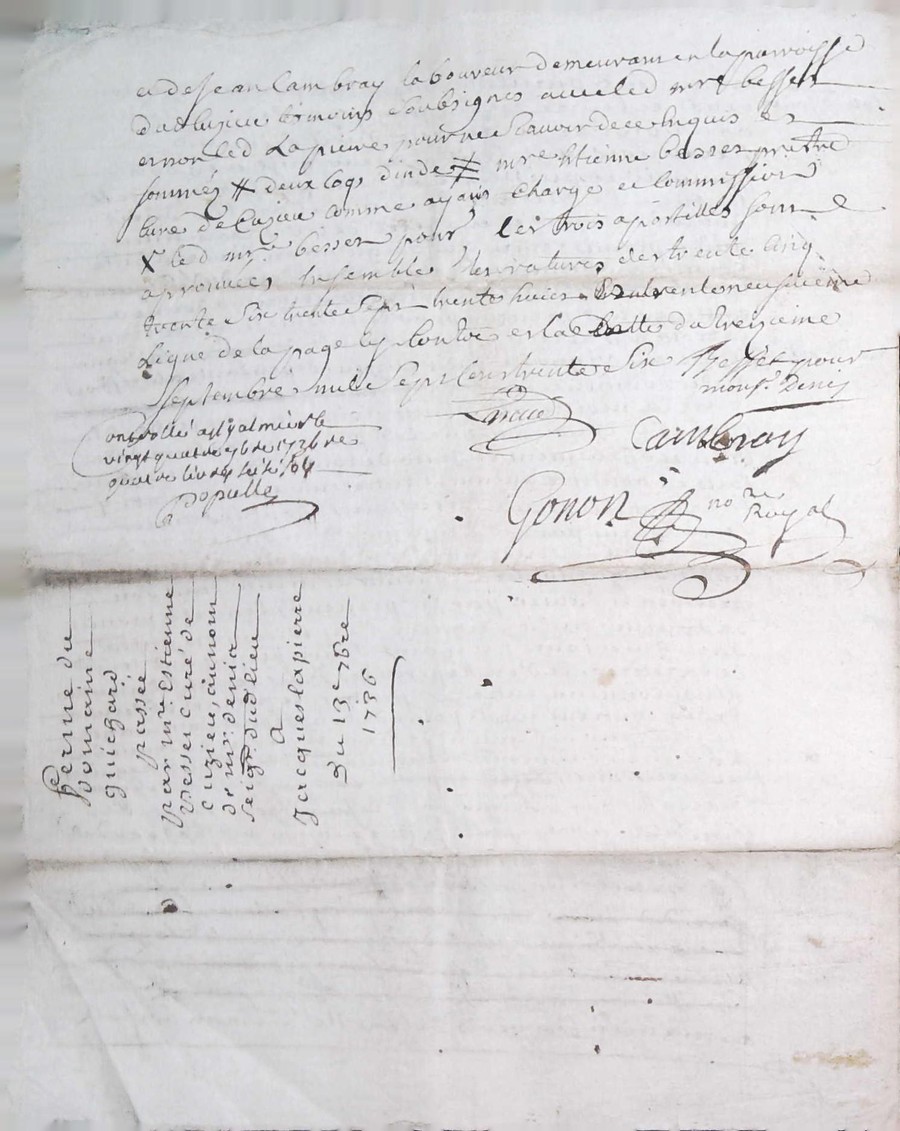 et de Jean Cambray laboureur demeurant en la parroisse
dud Cuzieu temoins soubsignes avec led mre besset
et non led Lapierre pour ne scavoir de ce enquis et
sommés # deux coqs dindes # mre Etienne besset pretre
curé de Cuzieu comme ayant charge et commission
x led mre besset pour les trois apostilles sont
aprouvées ensemble les ratures des trente cinq
trente six trente sept trente huit trente neufvieme
ligne de la page cy contre et la datte du treizieme
septembre mille sept cent trente six Besset pour
monsr Denis
Cambray
controllé a St galmier le
vingt quatre 7bre 1736 de
quatre livres seize s
populle
Gonon nore
Royal
Ferme du
domaine
guichard
passée
par mre Estienne
besset curé de
cuzieu, au nom
de mr. denis
seigr. dud lieu
A
Jacques lapierre
du 13e 7bre
1736